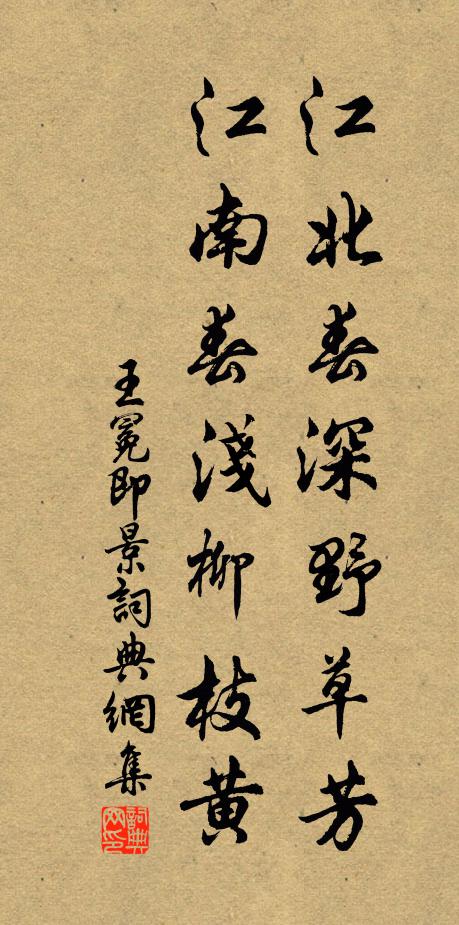 江北春深野草芳
江南春淺柳枝黃
王冕即景詞典網集
詞典網印